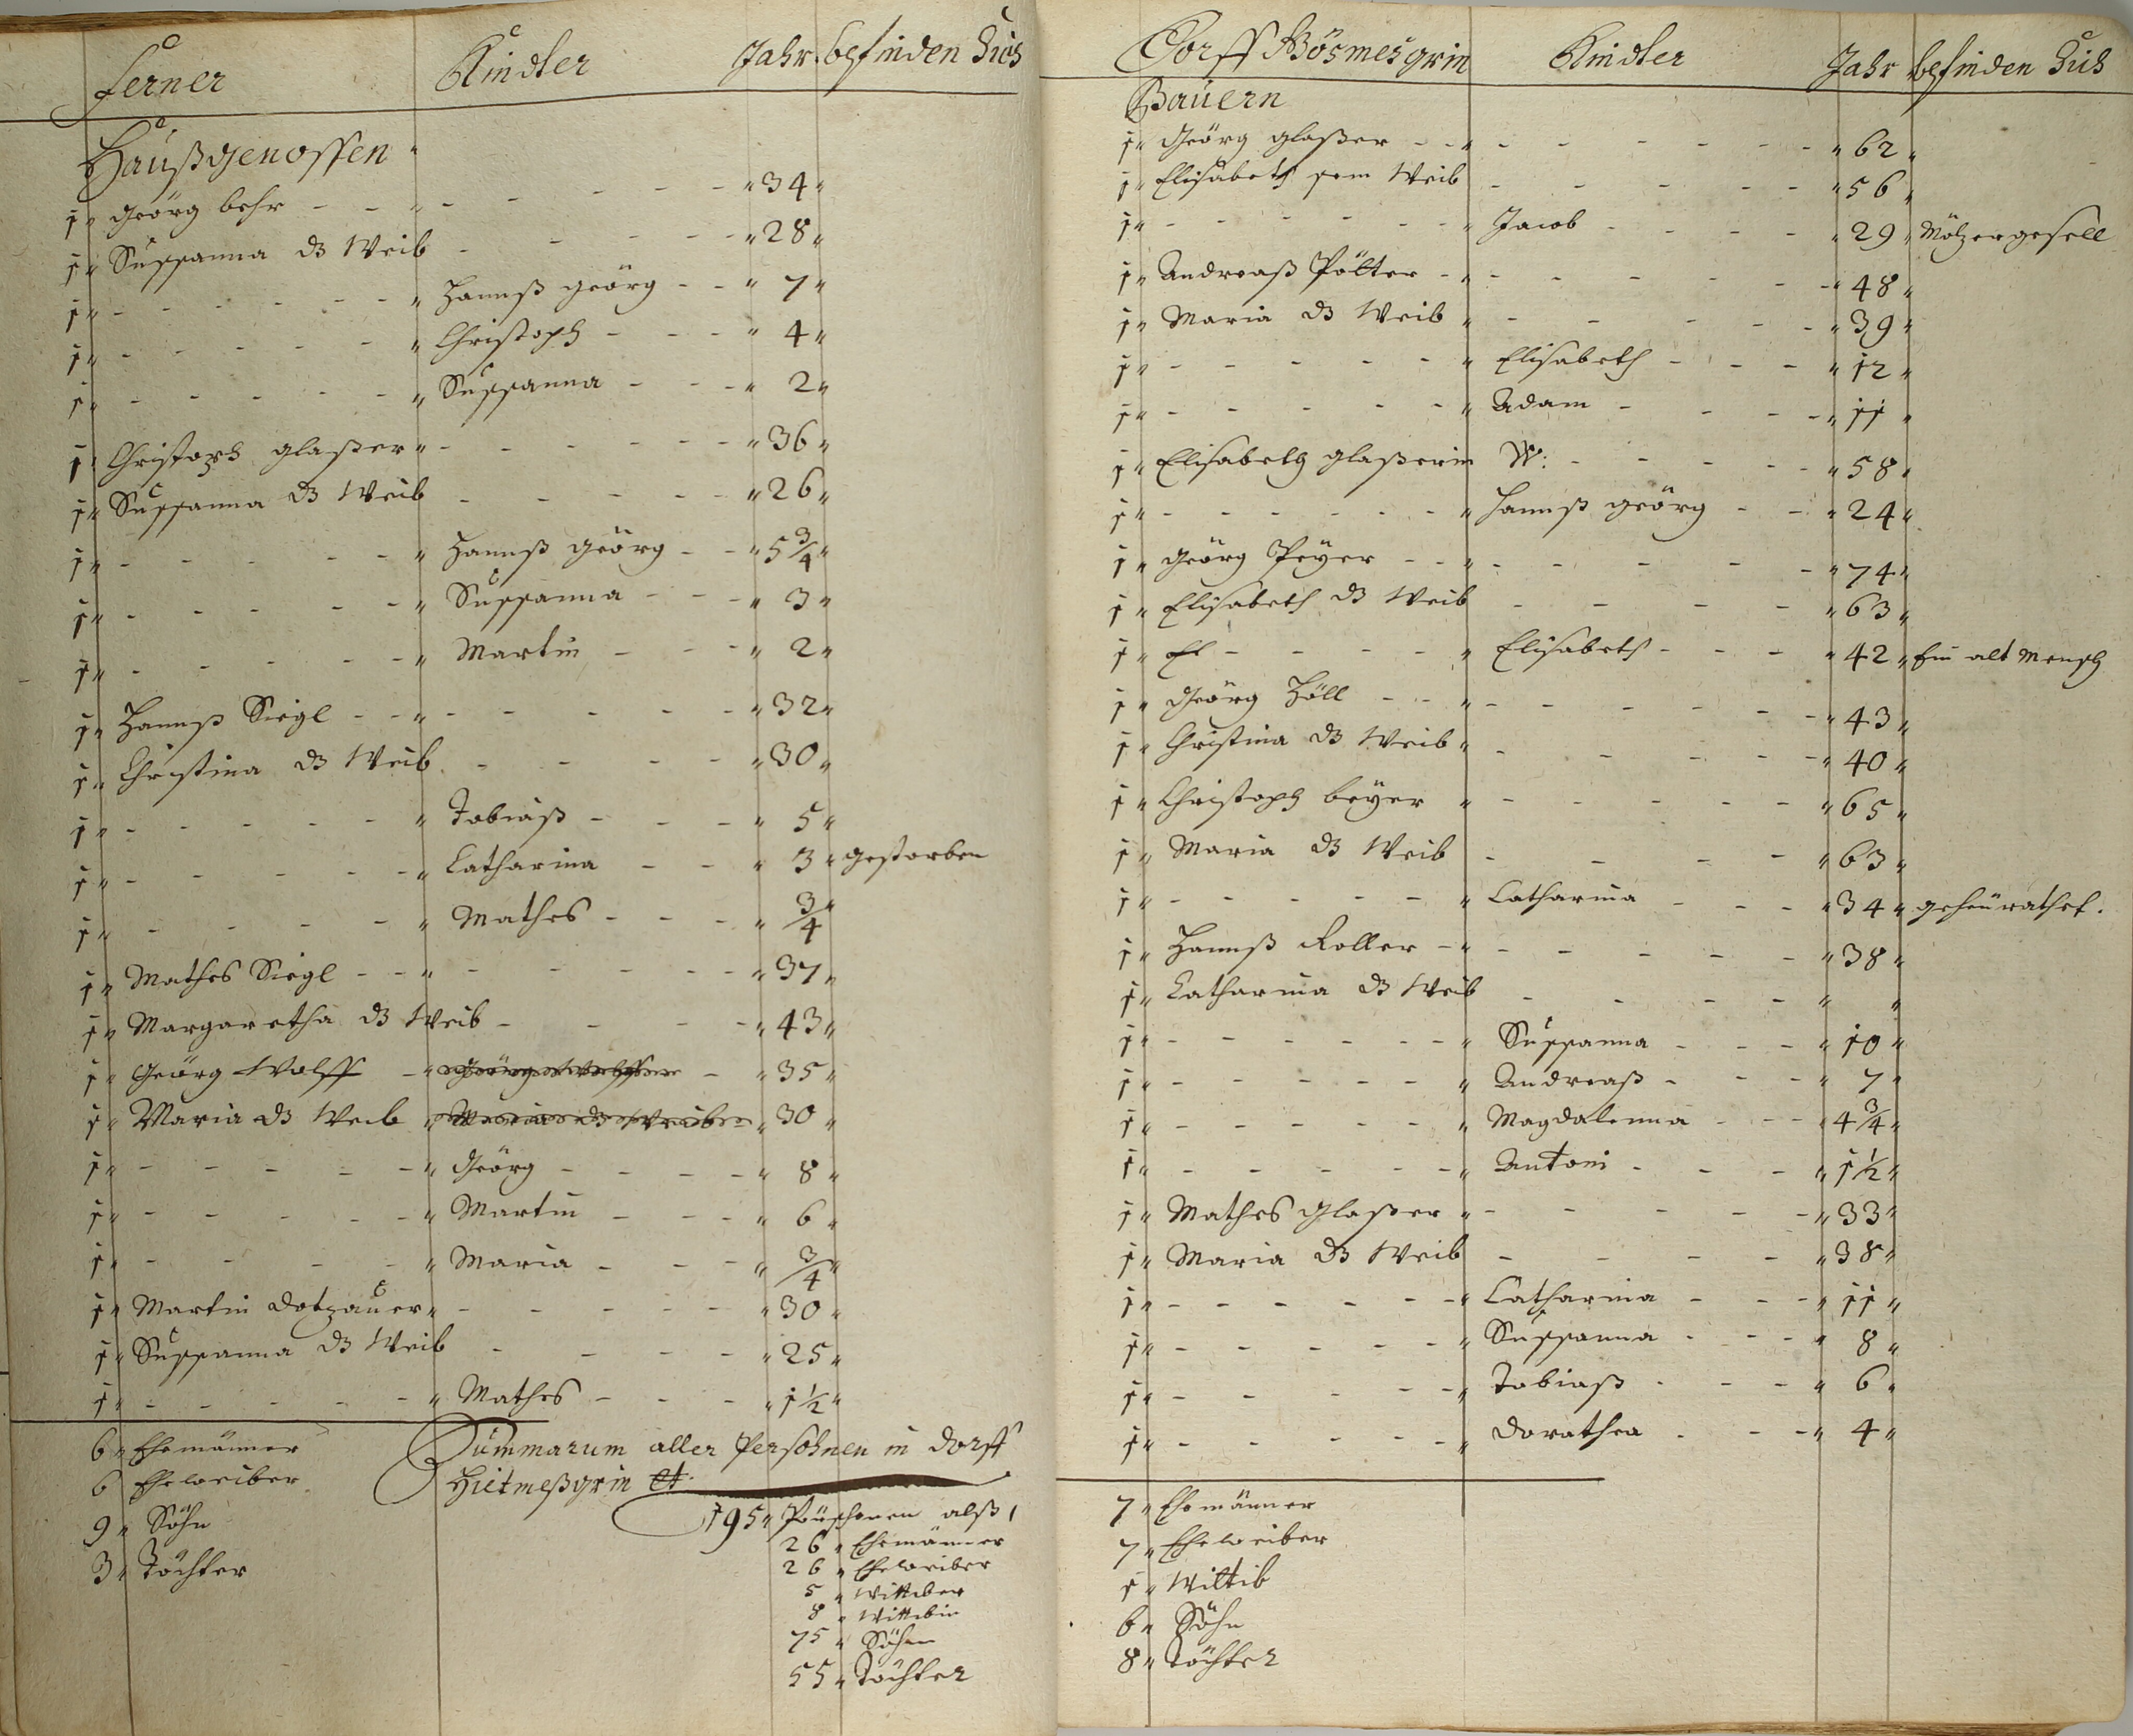 ferner Kindter Jahr befinden Sich
Haußgenossen
1 Geörg behr - - - - - - 34
1 Sussanna d3 Weib - - - - 28
1 - - - - - Hannß Geörg - - 7
1 - - - - - Christoph - - - 4
1 - - - - - Sussanna - - - 2
1 Christoph glaßer - - - - - 36
1 Sussanna d3 Weib - - - - 26
1 - - - - - Hannß Geörg - - 5 3/4
1 - - - - - Sussanna - - - 3
1 - - - - - Martin - - - 2
1 Hannß Siegl - - - - - - 32
1 Christina d3 Weib - - - - 30
1 - - - - - Tobiaß - - - 5
1 - - - - - Catharina - - 3 gestorben
1 - - - - - Mathes - - - 3/4
1 Mathes Siegl - - - - - - 37
1 Margaretha d3 Weib - - - - 43
1 Geörg Wolff - - 35
1 Maria d3 Weib 30
1 - - - - - Geörg - - - - 8
1 - - - - - Martin - - - 6
1 - - - - - Maria - - - 3/4
1 Martin Dotzauer - - - - - 30
1 Sussanna d3 Weib - - - - 25
1 - - - - - Mathes - - - 1 1/2
6 Ehemänner
6 Eheweiber
9 Söhn
3 Töchter
Summarum aller Persohnen in Dorff
Hietmeßgrin et
195 Persohnen alß
26 Ehemänner
26 Eheweiber
5 Wittiber
8 Wittibin
75 Söhne
55 Töchter
Dorff Bösmesgrin Kindter Jahr befinden Sich
Bauern
1 Geörg glaßer - - - - - - 62
1 Elisabeth sein Weib - - - - 56
1 - - - - - Jacob - - - - 29 Mölzergesell
1 Andreaß Pölter - - - - - - 48
1 Maria d3 Weib - - - - - 39
1 - - - - - Elisabeth - - - 12
1 - - - - - Adam - - - - 11
1 Elisabeth glaßerin W: - - - - 58
1 - - - - - Hannß Geörg - - 24
1 Geörg Peÿer - - - - - - 74
1 Elisabeth d3 Weib - - - - 63
1 - - - - Elisabeth - - - 42 Ein alt Mensch
1 Geörg Höll - - - - - - 43
1 Christina d3 Weib - - - - 40
1 Christoph beÿer - - - - - 65
1 Maria d3 Weib - - - - 63
1 - - - - - Catharina - - - 34 geheürathet.
1 Hannß Roller - - - - - - 38
1 Catharina d3 Weib - - - -
1 - - - - - Sussanna - - - 10
1 - - - - - Andreaß - - - 7
1 - - - - - Magdalenna - - - 4 3/4
1 - - - - - Antoni - - - 1 1/2
1 Mathes Glaßer - - - - - 33
1 Maria d3 Weib - - - - 38
1 - - - - - Catharina - - - 11
1 - - - - - Sussanna - - - 8
1 - - - - - Tobiaß - - - 6
1 - - - - - Dorathea - - - 4
7 Ehemänner
7 Eheweiber
1 Wittib
6 Söhn
8 Töchter